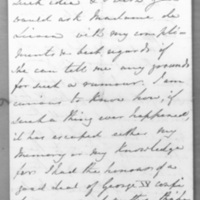 such idea & I wish you
would ask Madame de
Lieven with my compli-
ments & best regards if
she can tell me any grounds
for such a rumour. I am
curious to know how, if
such a thing ever happened,
it has escaped either my
memory or my knowledge
for I had the honour of a
good deal of George IV confi